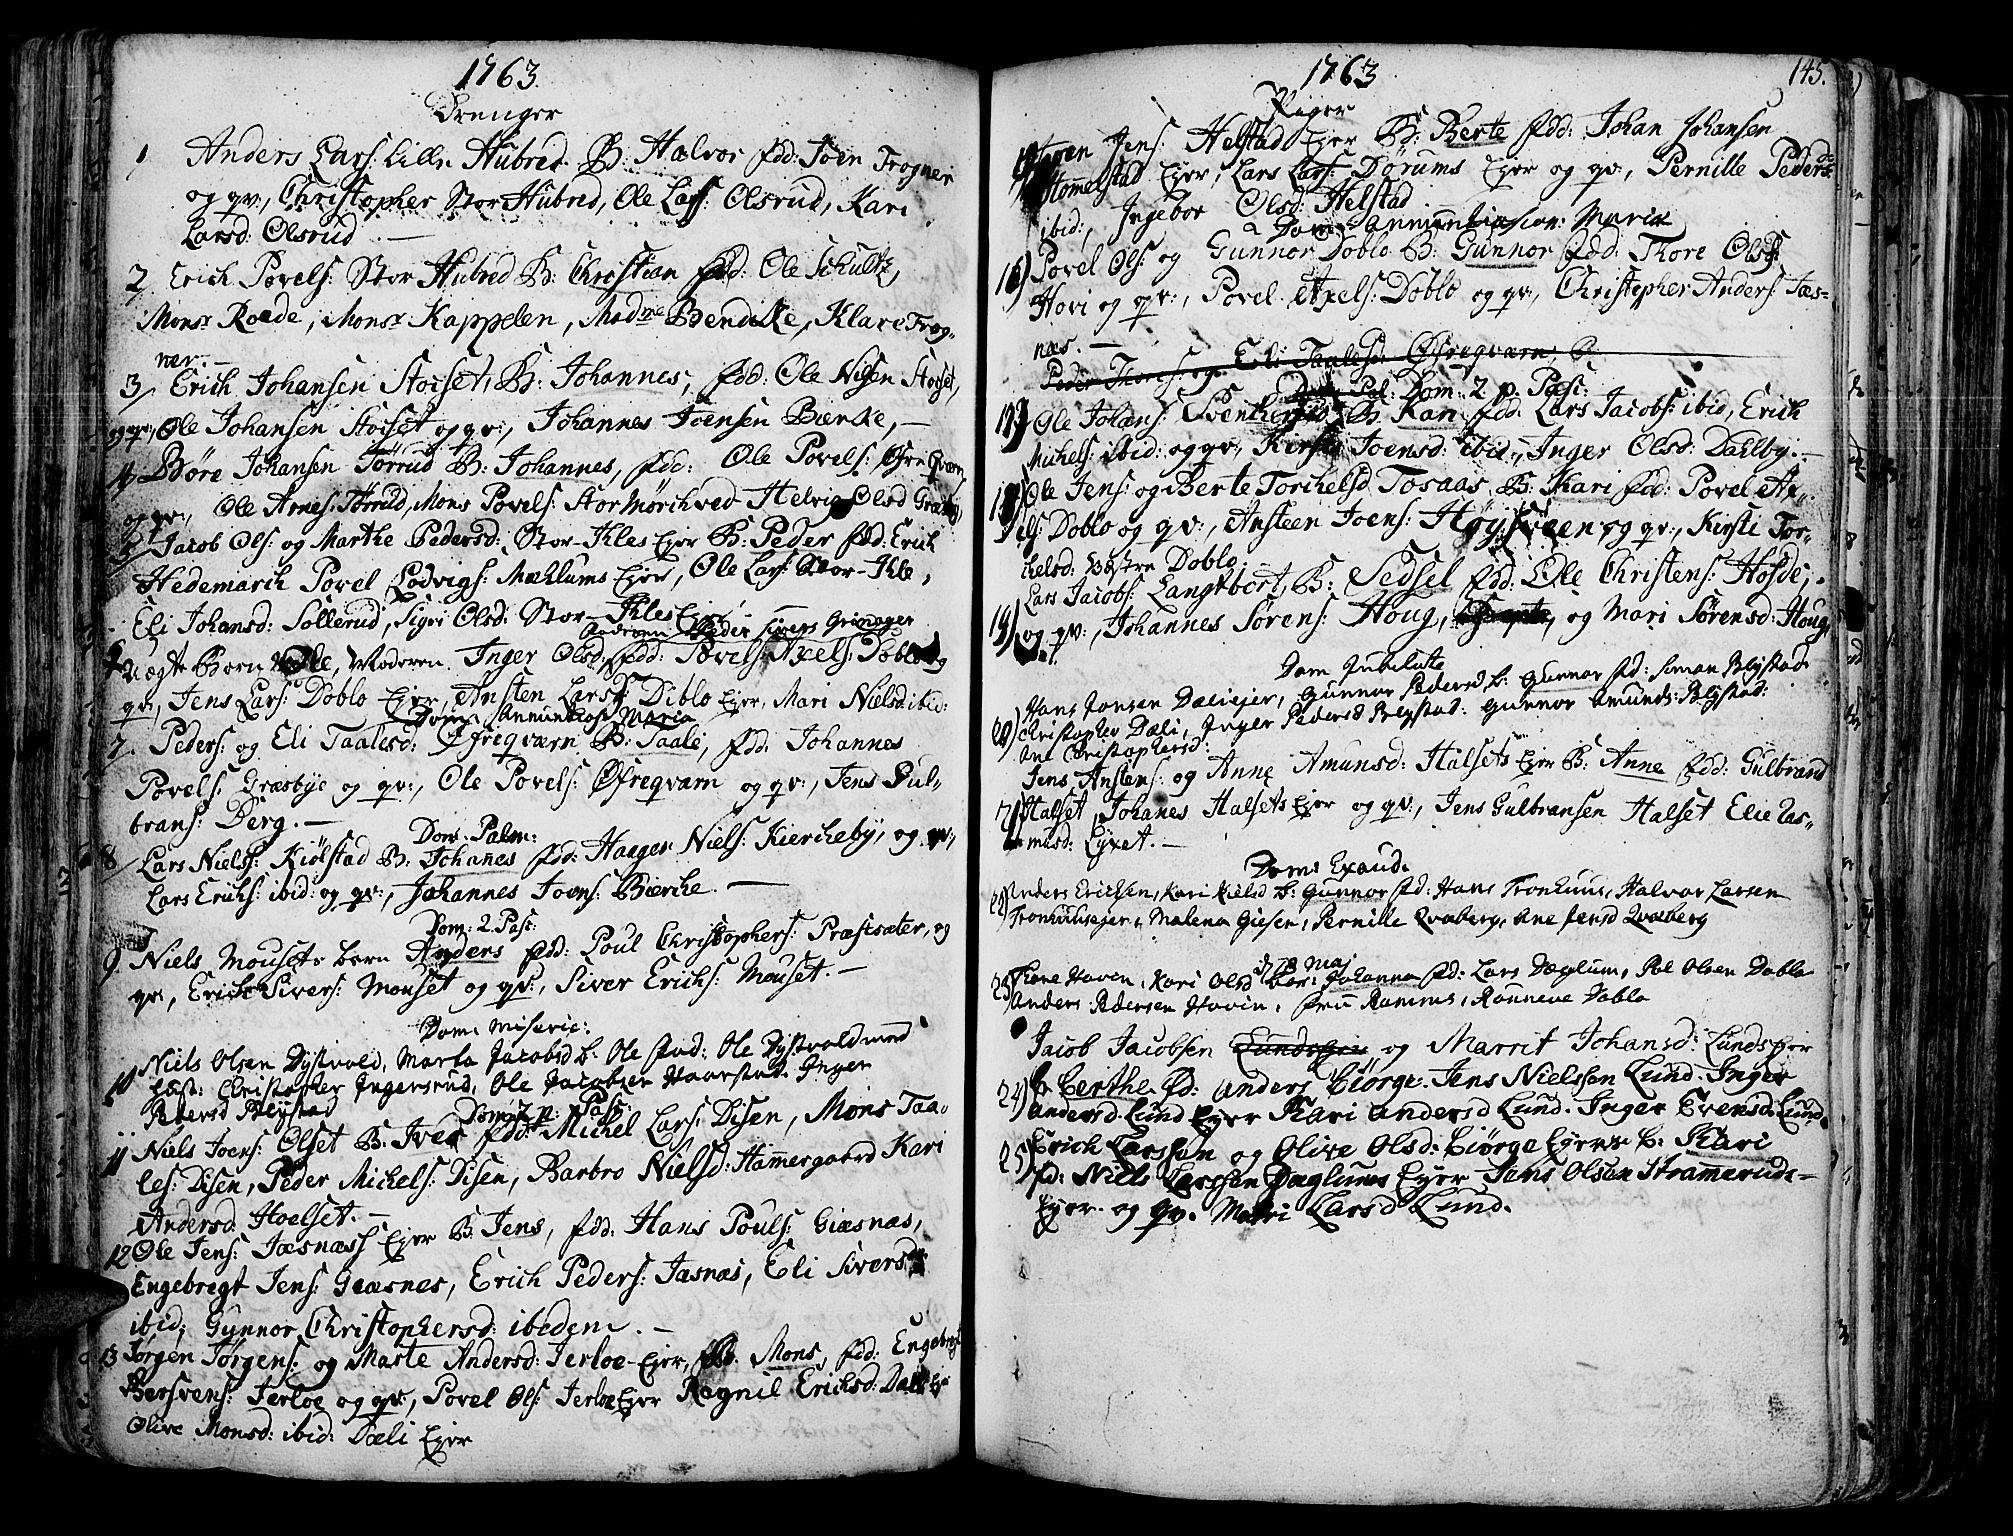 1763.
Drenger
1 Anders Lars: Lille Hubred. B: Halvor fdd: Joen Trogner
og qv:, Christopher Stor Hubred, Ole Lars: Olsrud, Kari
Larsd: Olsrud. —
2 Erich Povels: Stor Hubred B: Christian fdd: Ole Schultz,
Monsr Roade, Monsr Kappelen, Madme Bendeke, Klare Trog-
ner. —
3 Erich Johansen Stoiset, B: Johannes, fdd: Ole Nilsen Stoiset,
og qv:, Ole Johansen Stoiset og qv:, Johannes Joensen Biercke, —
4 Børe Johansen Tørrud B: Johannes, fdd: Ole Povels: Øfre Qværn
og qv:, Ole Arnes: Tørrud, Mons Povels: Stor Mørchved Helvig Olsd
5 Jacob Ols: og Marthe Pedersd: Stor-Ihles Ejer B: Peder fdd: Erich
Hedemarch Povel Lodvigs: Mæhlums Ejer, Ole Lars: Stor-Ihle,
Eli Johansd: Sollerud, Sigri Olsd: Stor-Ihles Ejer
Faderen Peder Sivers Grimager
6 Uægte Barn Ole, Moderen Inger Olsd fdd: Povel Axels: Doblo og
qv:, Jens Lars: Doblo Ejer, Ansten Lars: Diblo Ejer, Mari Nielsd ibid:
Dom: Annuntiat: Maria
7. Peders: og Eli Taalesd: Øfreqværn B: Taale, fdd: Johannes
Povels: Græsbye og qv:, Ole Povels: Øfreqvarn og qv:, Jens Gul-
brans: Berg. —
Dom: Palm:
8 Lars Niels: Kiølstad B: Johanes fdd: Haagen Niels: Kiercheby, og qv:,
Lars Erichs: ibid: og qv:, Johannes Joens: Bierche. —
Dom: 2. Pasc:
9 Niels Mousets barn Anders fdd: Poul Christophers: Præstsæter, og
qv:, Erich Sivers: Mouset og qv:, Siver Erichs: Mouset. —
Dom: Miseric:
10 Niels Olsen Dystvold, Marta Jacobsd b: Ole fad: Ole Dystvold med
Hust: Christopher Ingersrud, Ole Jacobsen Haarstad. Inger
Pedersd Blystad
Dom: 2 p: Pasc:
11 Niels Joens: Olset B: Iver fdd: Michel Lars: Disen, Mons Taa-
les: Disen, Peder Michels: Disen, Barbro Nielsd: Hammergaard Kari
Andersd Hoelset. —
12 Ole Jens: Jæsnæss Ejer B: Jens, fdd: Hans Pouls: Giæsnæs,
Engebregt Jens: Geæsnes, Erich Peders: Jasnæs, Eli Siversd:
ibid; Gunnor Christophersd: ibidem. —
13 Jørgen Jørgens: og Marte Andersd: Jerloe-Ejer, B: Mons, fdd: Engebregt
Bersvens: Jerloe og qv:, Povel Ols: Jerloe Ejer Ragnil Erichsd:
Olive Monsd: ibid: Dæli Ejer
1763
145.
Piger
Jens: Helstad Ejer B: Berte fdd: Johan Johansen
Stommelstad Ejer, Lars Lars: Dorums Ejer og qv:, Pernille Pedersd:
ibid:, Ingebor Olsd: Helstad
Dom: Annuntiasion: Mariæ
16) Povel Ols: og Gunnor Doblo B: Gunnor fdd: Thore Ols:
Hovi og qv:, Povel Axels: Doblo og qv:, Christopher Anders: Jæs-
næs. —
Peder Thores: og Eli Taalesd: Øfreqværn, B
Dom: 2 p. Pasc:
17) Ole Johans: B: Kari fdd: Lars Jacobs: ibid, Erich
Michels: ibid: og qv:, Kirsti Joensd: ibid:, Inger Olsd: Dahlby. —
18) Ole Jens: og Berte Torchelsd Tosaas B: Kari fdd: Povel Ax-
els: Doblo og qv:, Ansteen Joens: og qv:, Kirsti Tor-
chelsd: Vestre Doblo.
19) Lars Jacobs: Langtbort, B: Sedsel fdd: Ole Christens: Hosde,
og qv:, Johannes Sørens: Houg, og Mari Sørensd: Houg.
Dom Jubilate
20) Hans Jonsen Dæliejer, Gunnor Pedersd b: Gunnor fd: Simon Blystad
Christopher Dæli, Inger Pedersd Blystad: Gunnor Amunds: Blystad:
Ane Christophersd:
Jens Anstens: og Anne Amunsd: Halsets Ejer B: Anne fdd: Gulbrand
21) Halset, Johanes Halsets Ejer og qv:, Jens Gulbransen Halset Elie Ras-
musd: Lyxet. —
Dom: Exaudi
22) Anders Erichsen, Kari Nielsd b: Gunnor fd: Hans Tronhuus, Halvor Larsen
Tronhuusejer, Malena Giesen, Pernille Qvaberg, Ane Jensd Qvaberg
Maj
23) Thore Hovin, Kari Olsd bar: Johanna fd: Lars Dæglum, Pol Olsen Dobla
Anders Pedersen Hovin, fru Ramms, Ronneve Dobla
Jacob Jacobsen Lundsejer og Marrit Johansd: Lundsejer
24) B: Berthe fd: Anders Biørge. Jens Nielssen Lund. Inger
Andersd Lund Ejer Kari Andersd Lund. Inger Evensd Lund.
25) Erich Larssen og Olive Olsd: Biørge Ejere B: Kari
fd: Niels Larssen Dæglums Ejer Jens Olsen Strameruds-
Ejer. og qv. Mari Larsd Lund.